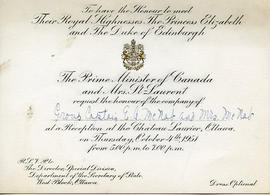 To have the Honour to meet
Their Royal Highnesses The Princess Elizabeth
and The Duke of Edinburgh
The Prime Minister of Canada
and Mrs. St. Laurent
request the honour of the company of
Group Captain C.R. and Mrs.
at a Reception at the Chateau Laurier, Ottawa,
on Thursday, October 4th 1951
from 5.00 p.m. to 7.00 p.m.
R.S.V.P. to
The Director, Special Division,
Department of the Secretary of State,
West Block, Ottawa.
Dress Optional